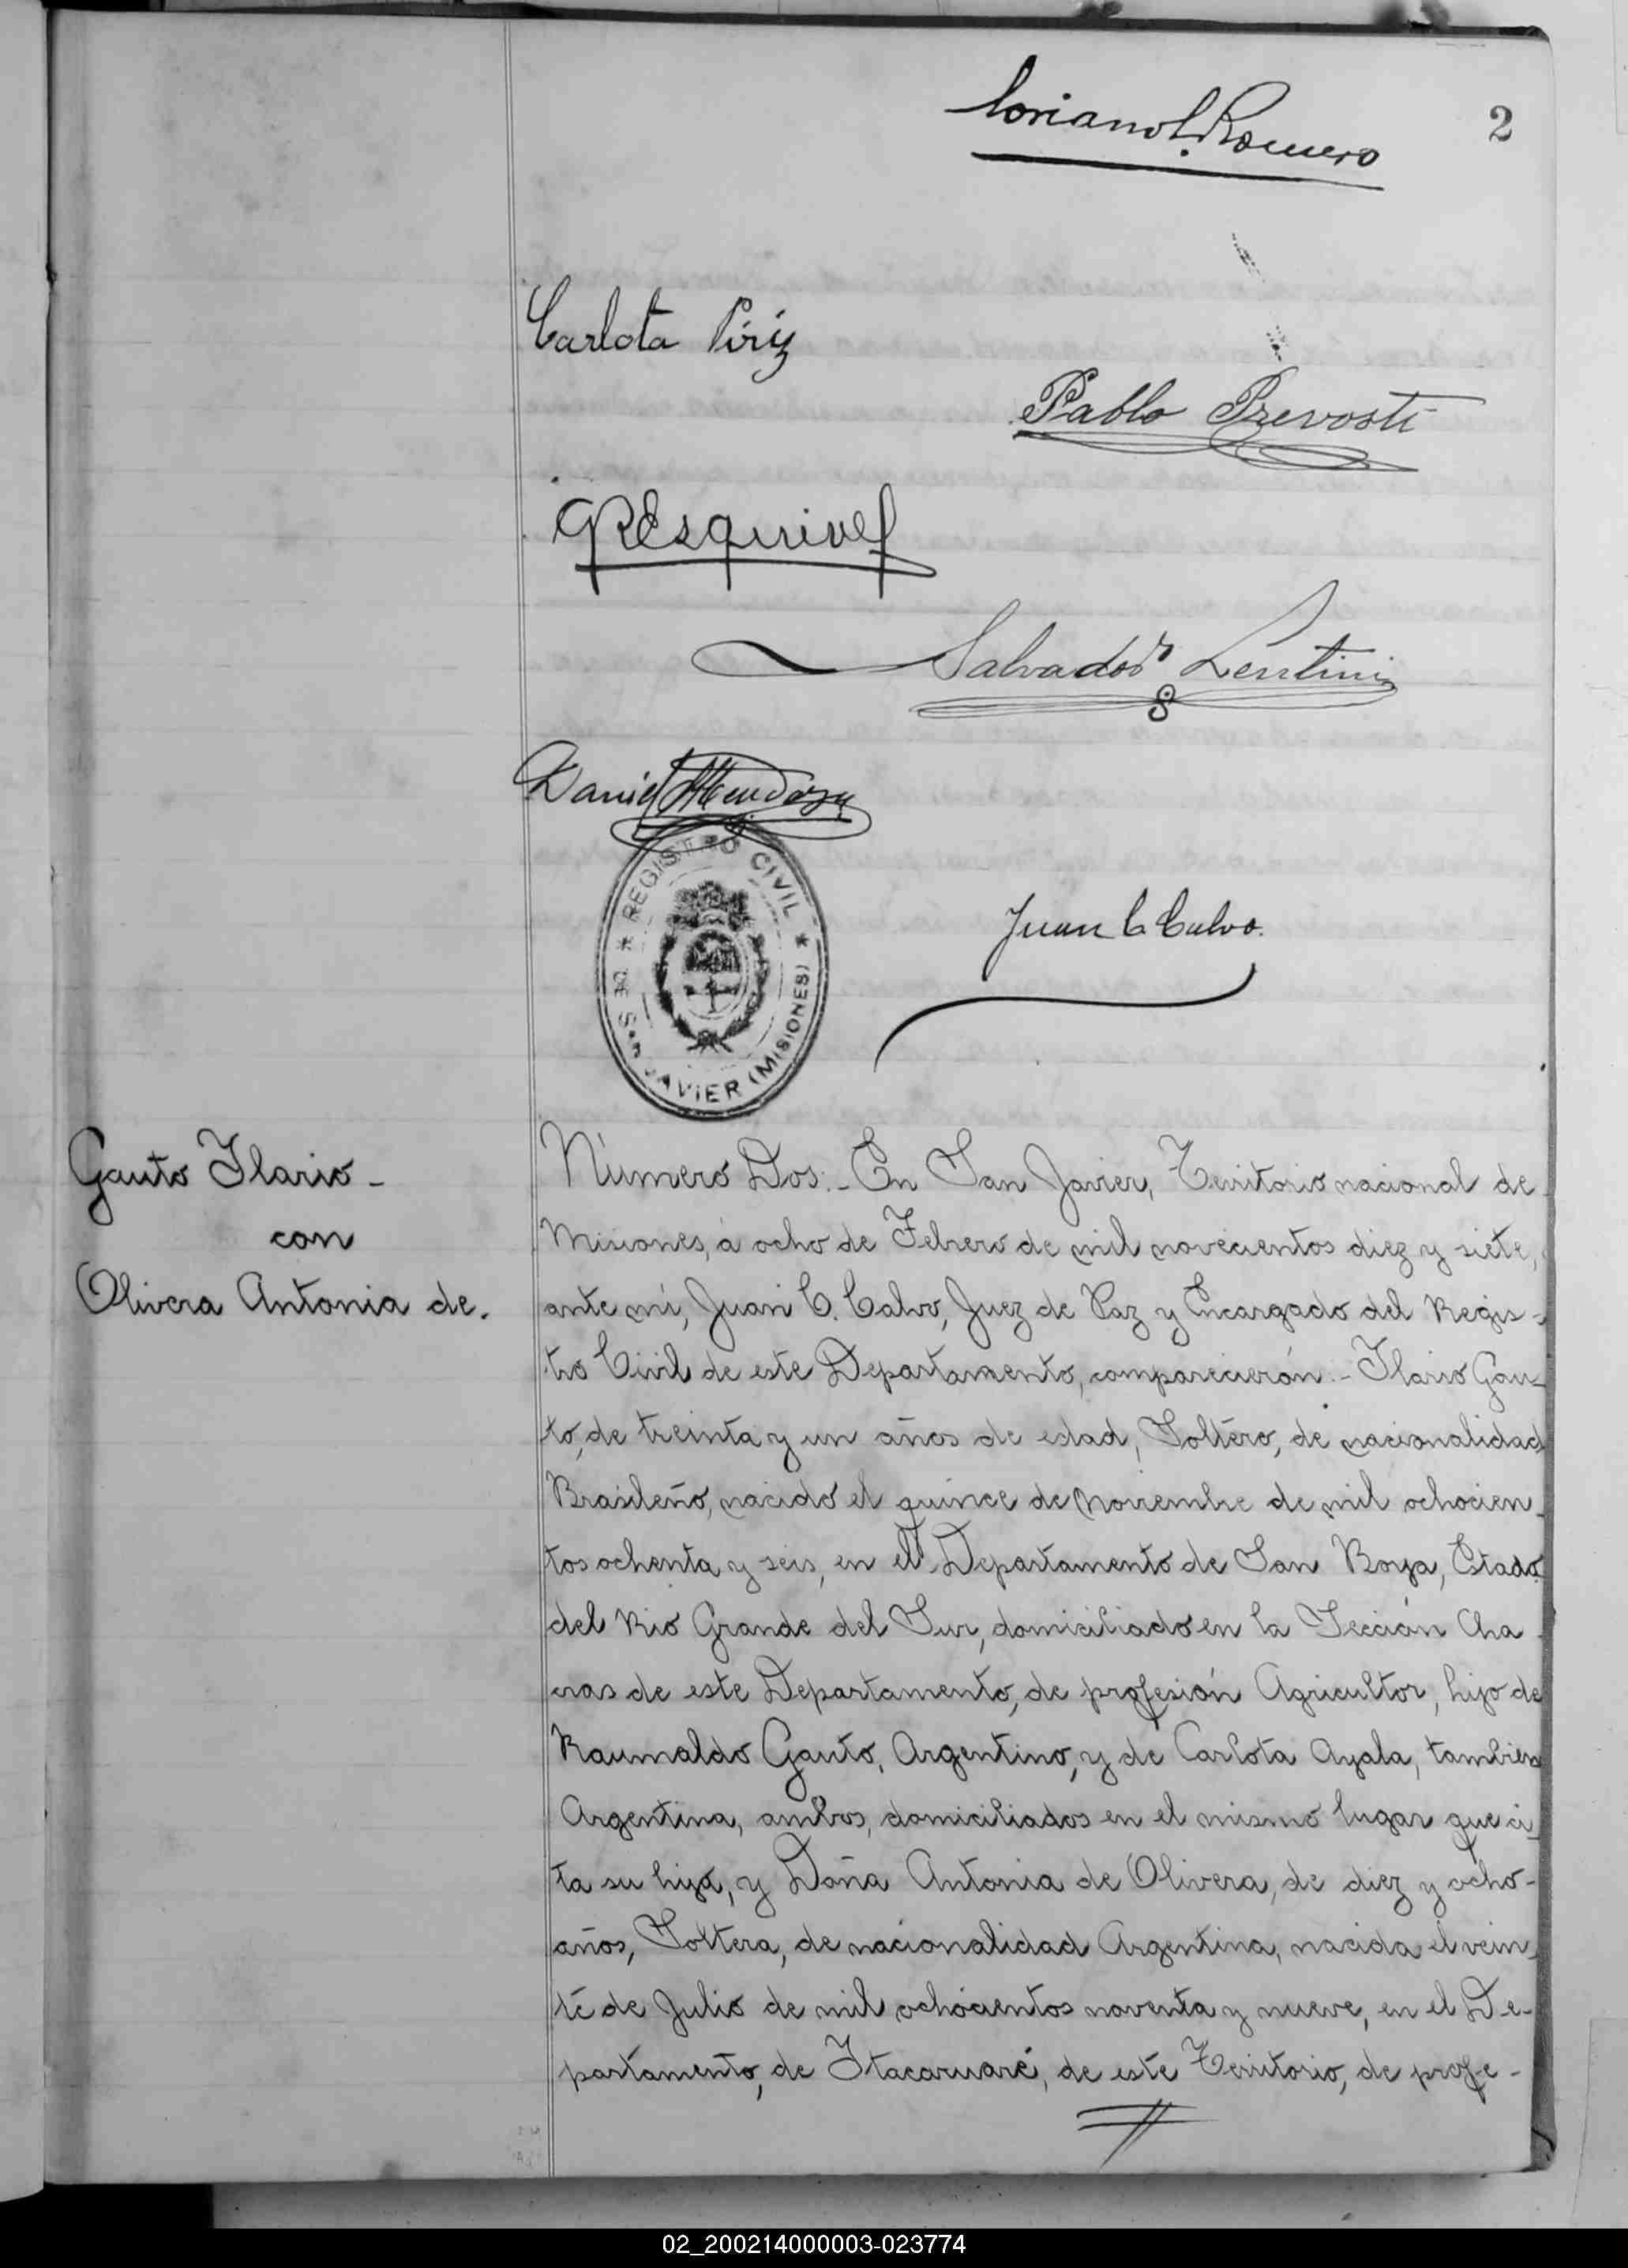 Coriano L. Romero
2
Carlota Píriz
Pablo Prevosti
GREsquivel
Salvador Lentini
Daniel Mendoza
REGISTRO CIVIL
DE San JAVIER (MISIONES)
Juan C. Calvo.
Gauto Ilario -
con
Olivera Antonia de.
Número Dos.- En San Javier, Territorio nacional de
Misiones, á ocho de Febrero de mil novecientos diez y siete,
ante mí, Juan C. Calvo, Juez de Paz y Encargado del Regis-
tro Civil de este Departamento, comparecierón:- Ilario Gau-
to, de treinta y un años de edad, Soltero, de nacionalidad
Brasileño, nacido el quince de Noviembre de mil ochocien-
tos ochenta y seis, en el Departamento de San Borja, Estado
del Rio Grande del Sur, domiciliado en la Sección Cha-
cras de este Departamento, de profesión Agricultor, hijo de
Raumaldo Gauto, Argentino, y de Carlota Ayala, tambien
Argentina, ambos, domiciliados en el mismo lugar que ci-
ta su hijo, y Doña Antonia de Olivera, de diez y ocho-
años, Soltera, de nacionalidad Argentina, nacida el vein-
te de Julio de mil ochocientos noventa y nueve, en el De-
partamento, de Itacaruaré, de este Territorio, de profe-
02_200214000003-023774